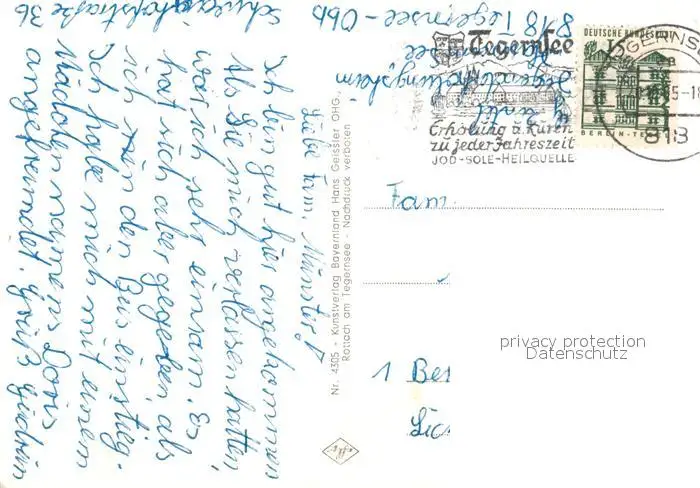 8 18 Tegernsee-Obb
Schwaighofstraße 36
Liebe Fam. Münster!
Ich bin gut hier angekommen
Als Sie mich verlassen hatten,
war ich sehr einsam. Es
hat sich aber gegeben, als
ich in den Bus einstieg.
Ich habe mich mit einem
Mädchen namens Doris
angefreundet. Gruß Gudrun
Nr. 4305 - Kunstverlag Bayernland Hans Geissler OHG.,
Rottach am Tegernsee - Nachdruck verboten
Tegernsee
Erholung u. Kuren
zu jeder Jahreszeit
JOD-SOLE-HEILQUELLE
DEUTSCHE BUNDESPOST
BERLIN-TE
TEGERNSEE
818
Fam.
1 Ber
Lic
privacy protection
Datenschutz